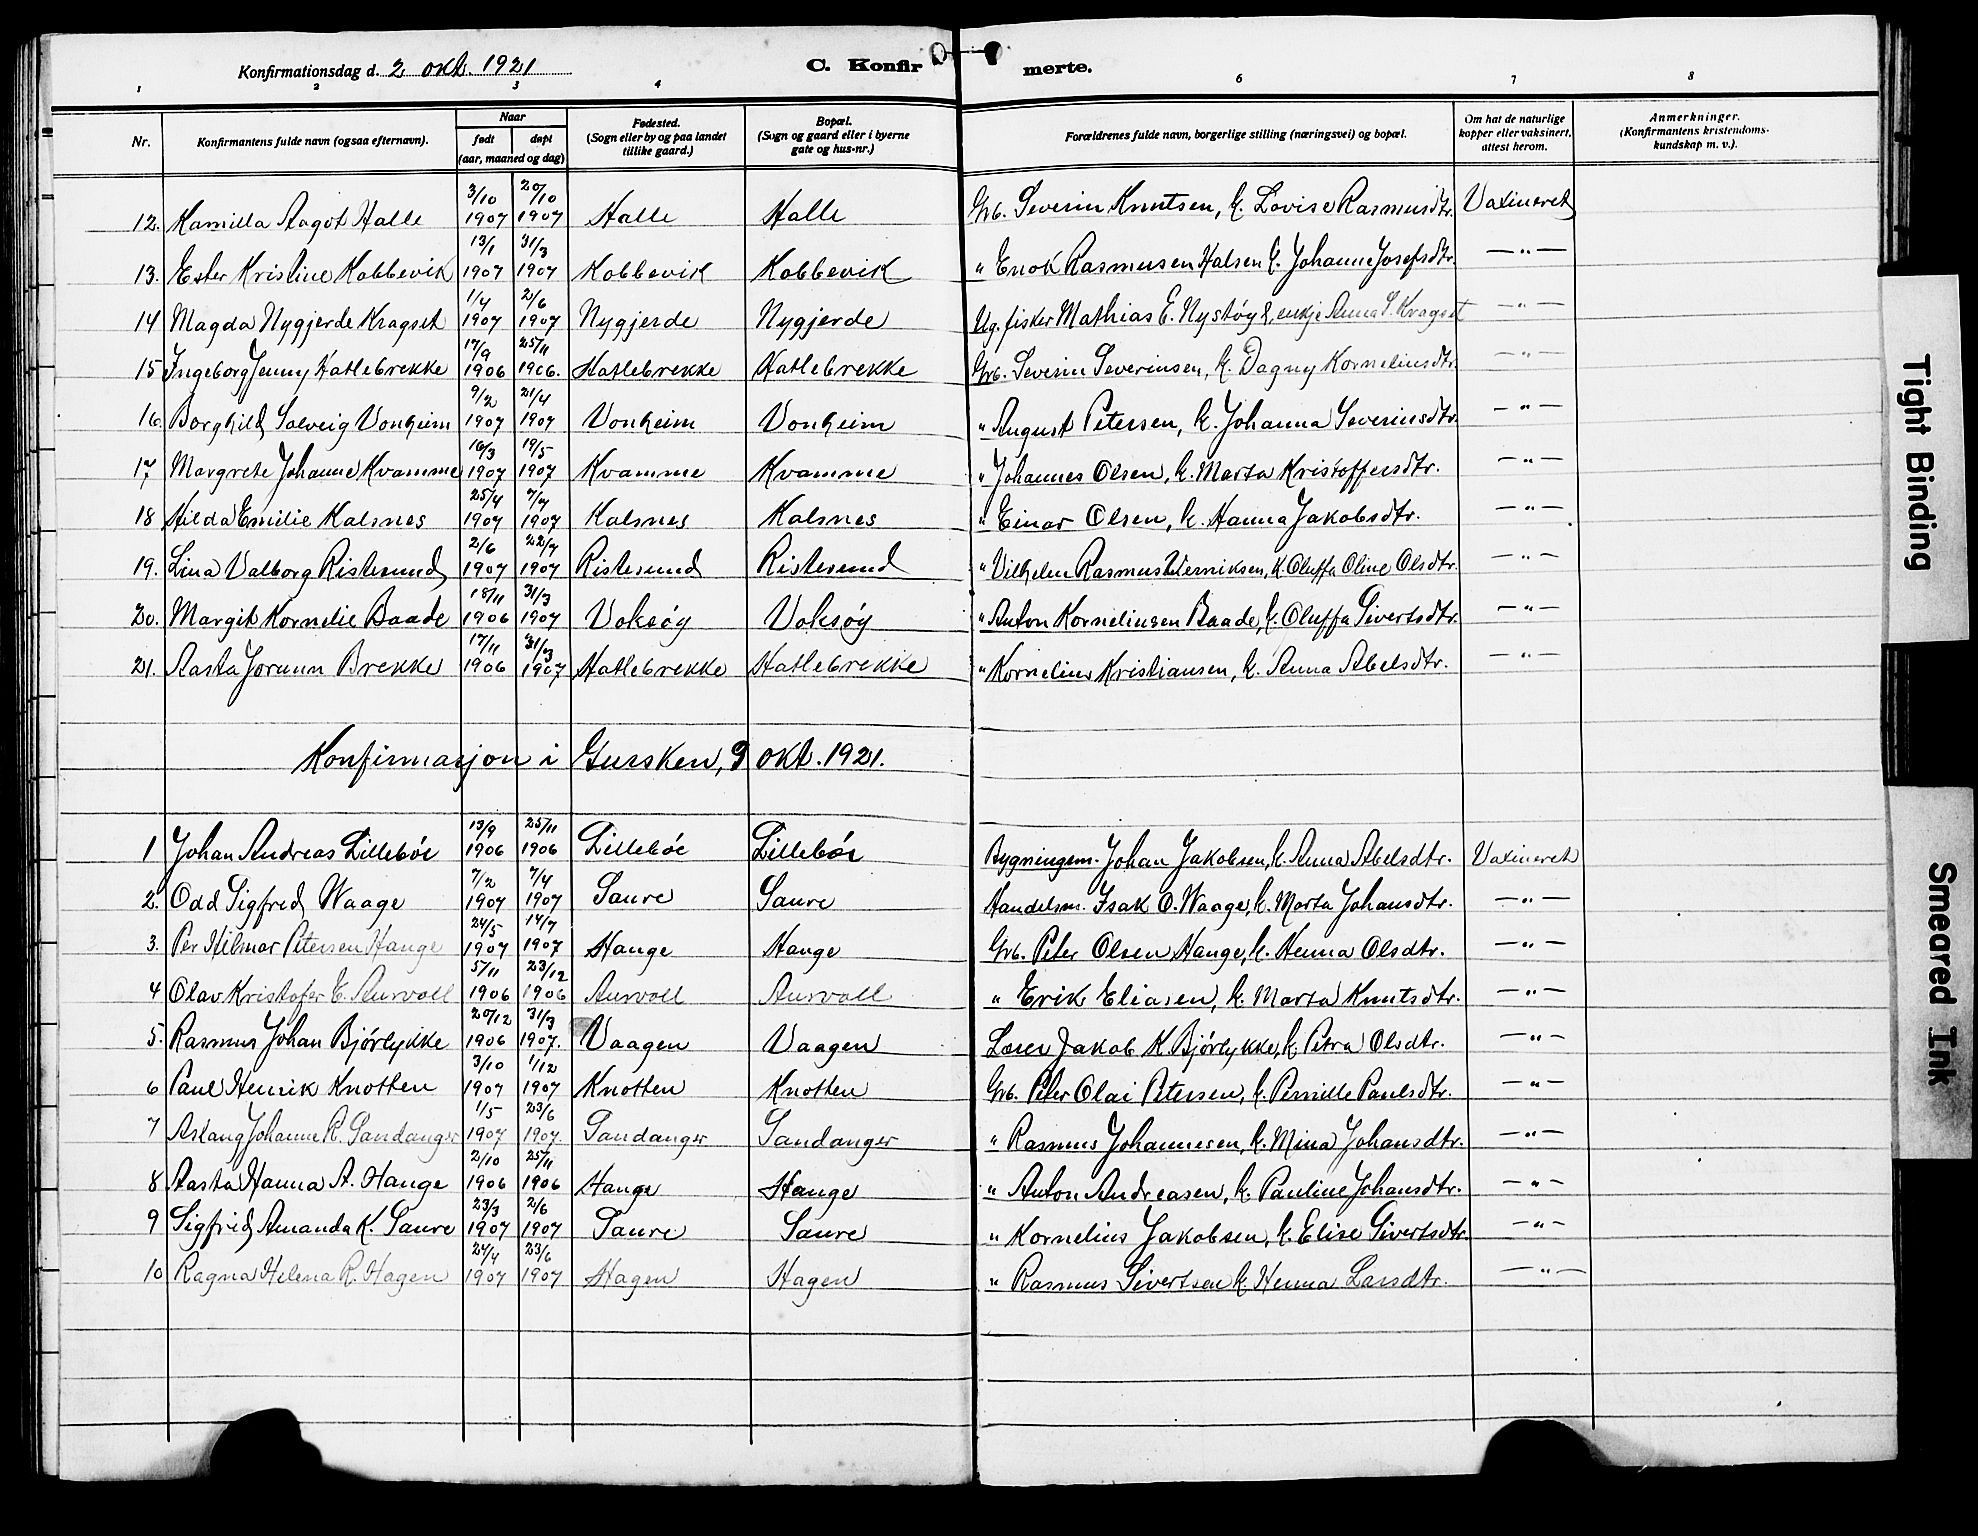 Konfirmationsdag d. 2 okt. 1921 C. Konfirmerte.
1 2 3 4 6 7 8
Nr. Konfirmantens fulde navn (ogsaa efternavn). Naar født døpt (aar, maaned og dag) Fødested. (Sogn eller by og paa landet tillike gaard.) Bopæl. (Sogn og gaard eller i byerne gate og hus-nr.) Forældrenes fulde navn, borgerlige stilling (næringsvei) og bopæl. Om hat de naturlige kopper eller vaksinert, attest herom. Anmerkninger. (Konfirmantens kristendomskundskap m. v.).
12. Kamilla Aagot Halle 3/10 1907 20/10 1907 Halle Halle Grb. Severin Knutsen, k. Lovise Rasmusdtr. Vaxineret
13. Ester Kristine Kobbevik 13/1 1907 31/3 1907 Kobbevik Kobbevik " Enok Rasmusen Halsen k. Johanne Josefsdtr. —"—
14 Magda Nygjerde Kragset 1/4 1907 2/6 1907 Nygjerde Nygjerde Ug. fisker Mathias E. Nystøyl, enkje Anna S. Kragset —"—
15 Ingeborg Jenny Hatlebrekke 17/9 1906 25/11 1906. Hatlebrekke Hatlebrekke Grb. Severin Severinsen, k. Dagny Korneliusdtr. —"—
16. Borghild Solveig Vonheim 9/2 1907 21/4 1907 Vonheim Vonheim " August Petersen, k. Johanna Severinsdtr. —"—
17 Margrete Johanne Kvamme 16/3 1907 19/5 1907 Kvamme Kvamme " Johannes Olsen, k. Marta Kristoffersdtr. —"—
18 Hilda Emilie Kalsnes 25/4 1907 7/7 1907 Kalsnes Kalsnes " Einar Olsen, k. Hanna Jakobsdtr. —"—
19. Lina Valborg Ristesund 2/6 1907 22/7 1907 Ristesund Ristesund " Vilhelm Rasmus Henriksen, k. Oluffa Oline Olsdtr. —"—
20. Margit Kornelie Baade 18/11 1906 31/3 1907 Voksøy Voksøy " Anton Korneliusen Baade, k. Oluffa Sivertsdtr. —"—
21. Aasta Jorunn Brekke 17/11 1906 31/3 1907 Hatlebrekke Hatlebrekke " Kornelius Kristiansen, k. Anna Abelsdtr. —"—
Konfirmasjon i Gursken, 9 okt. 1921.
1 Johan Andreas Lillebøe 13/9 1906 25/11 1906 Lillebøe Lillebøe Bygningsm. Johan Jakobsen, k. Anna Abelsdtr. Vaxineret
2. Odd Sigfred Waage 7/2 1907 7/4 1907 Saure Saure Handelsm. Isak O. Waage, k. Marta Johansdtr. —"—
3. Per Hilmar Petersen Hauge 24/5 1907 14/7 1907 Hauge Hauge Grb. Peter Olsen Hauge, k. Henna Olsdtr. —"—
4 Olav Kristofer E. Aurvoll 5/11 1906 23/12 1906 Aurvoll Aurvoll " Erik Eliasen, k. Marta Knutsdtr. —"—
5. Rasmus Johan Bjørlykke 20/12 1906 31/3 1907. Vaagen Vaagen Lærer Jakob K. Bjørlykke, k. Petra Olsdtr. —"—
6 Paul Henrik Knotten 3/10 1907 1/12 1907 Knotten Knotten Grb. Peter Olai Petersen, k. Pernille Paulsdtr. —"—
7 Aslaug Johanne R. Sandanger 1/5 1907 23/6 1907. Sandanger Sandanger " Rasmus Johannesen, k. Mina Johansdtr. —"—
8 Aasta Hanna A. Hauge 2/10 1906 25/11 1906 Hauge Hauge " Anton Andreasen, k. Pauline Johansdtr. —"—
9 Sigfrid Amanda K. Saure 23/3 1907 2/6 1907 Saure Saure " Kornelius Jakobsen, k. Elise Sivertsdtr. —"—
10 Ragna Helena R. Hagen 24/4 1907 23/6 1907 Hagen Hagen " Rasmus Sivertsen k. Henna Larsdtr. —"—
Tight Binding
Smeared Ink